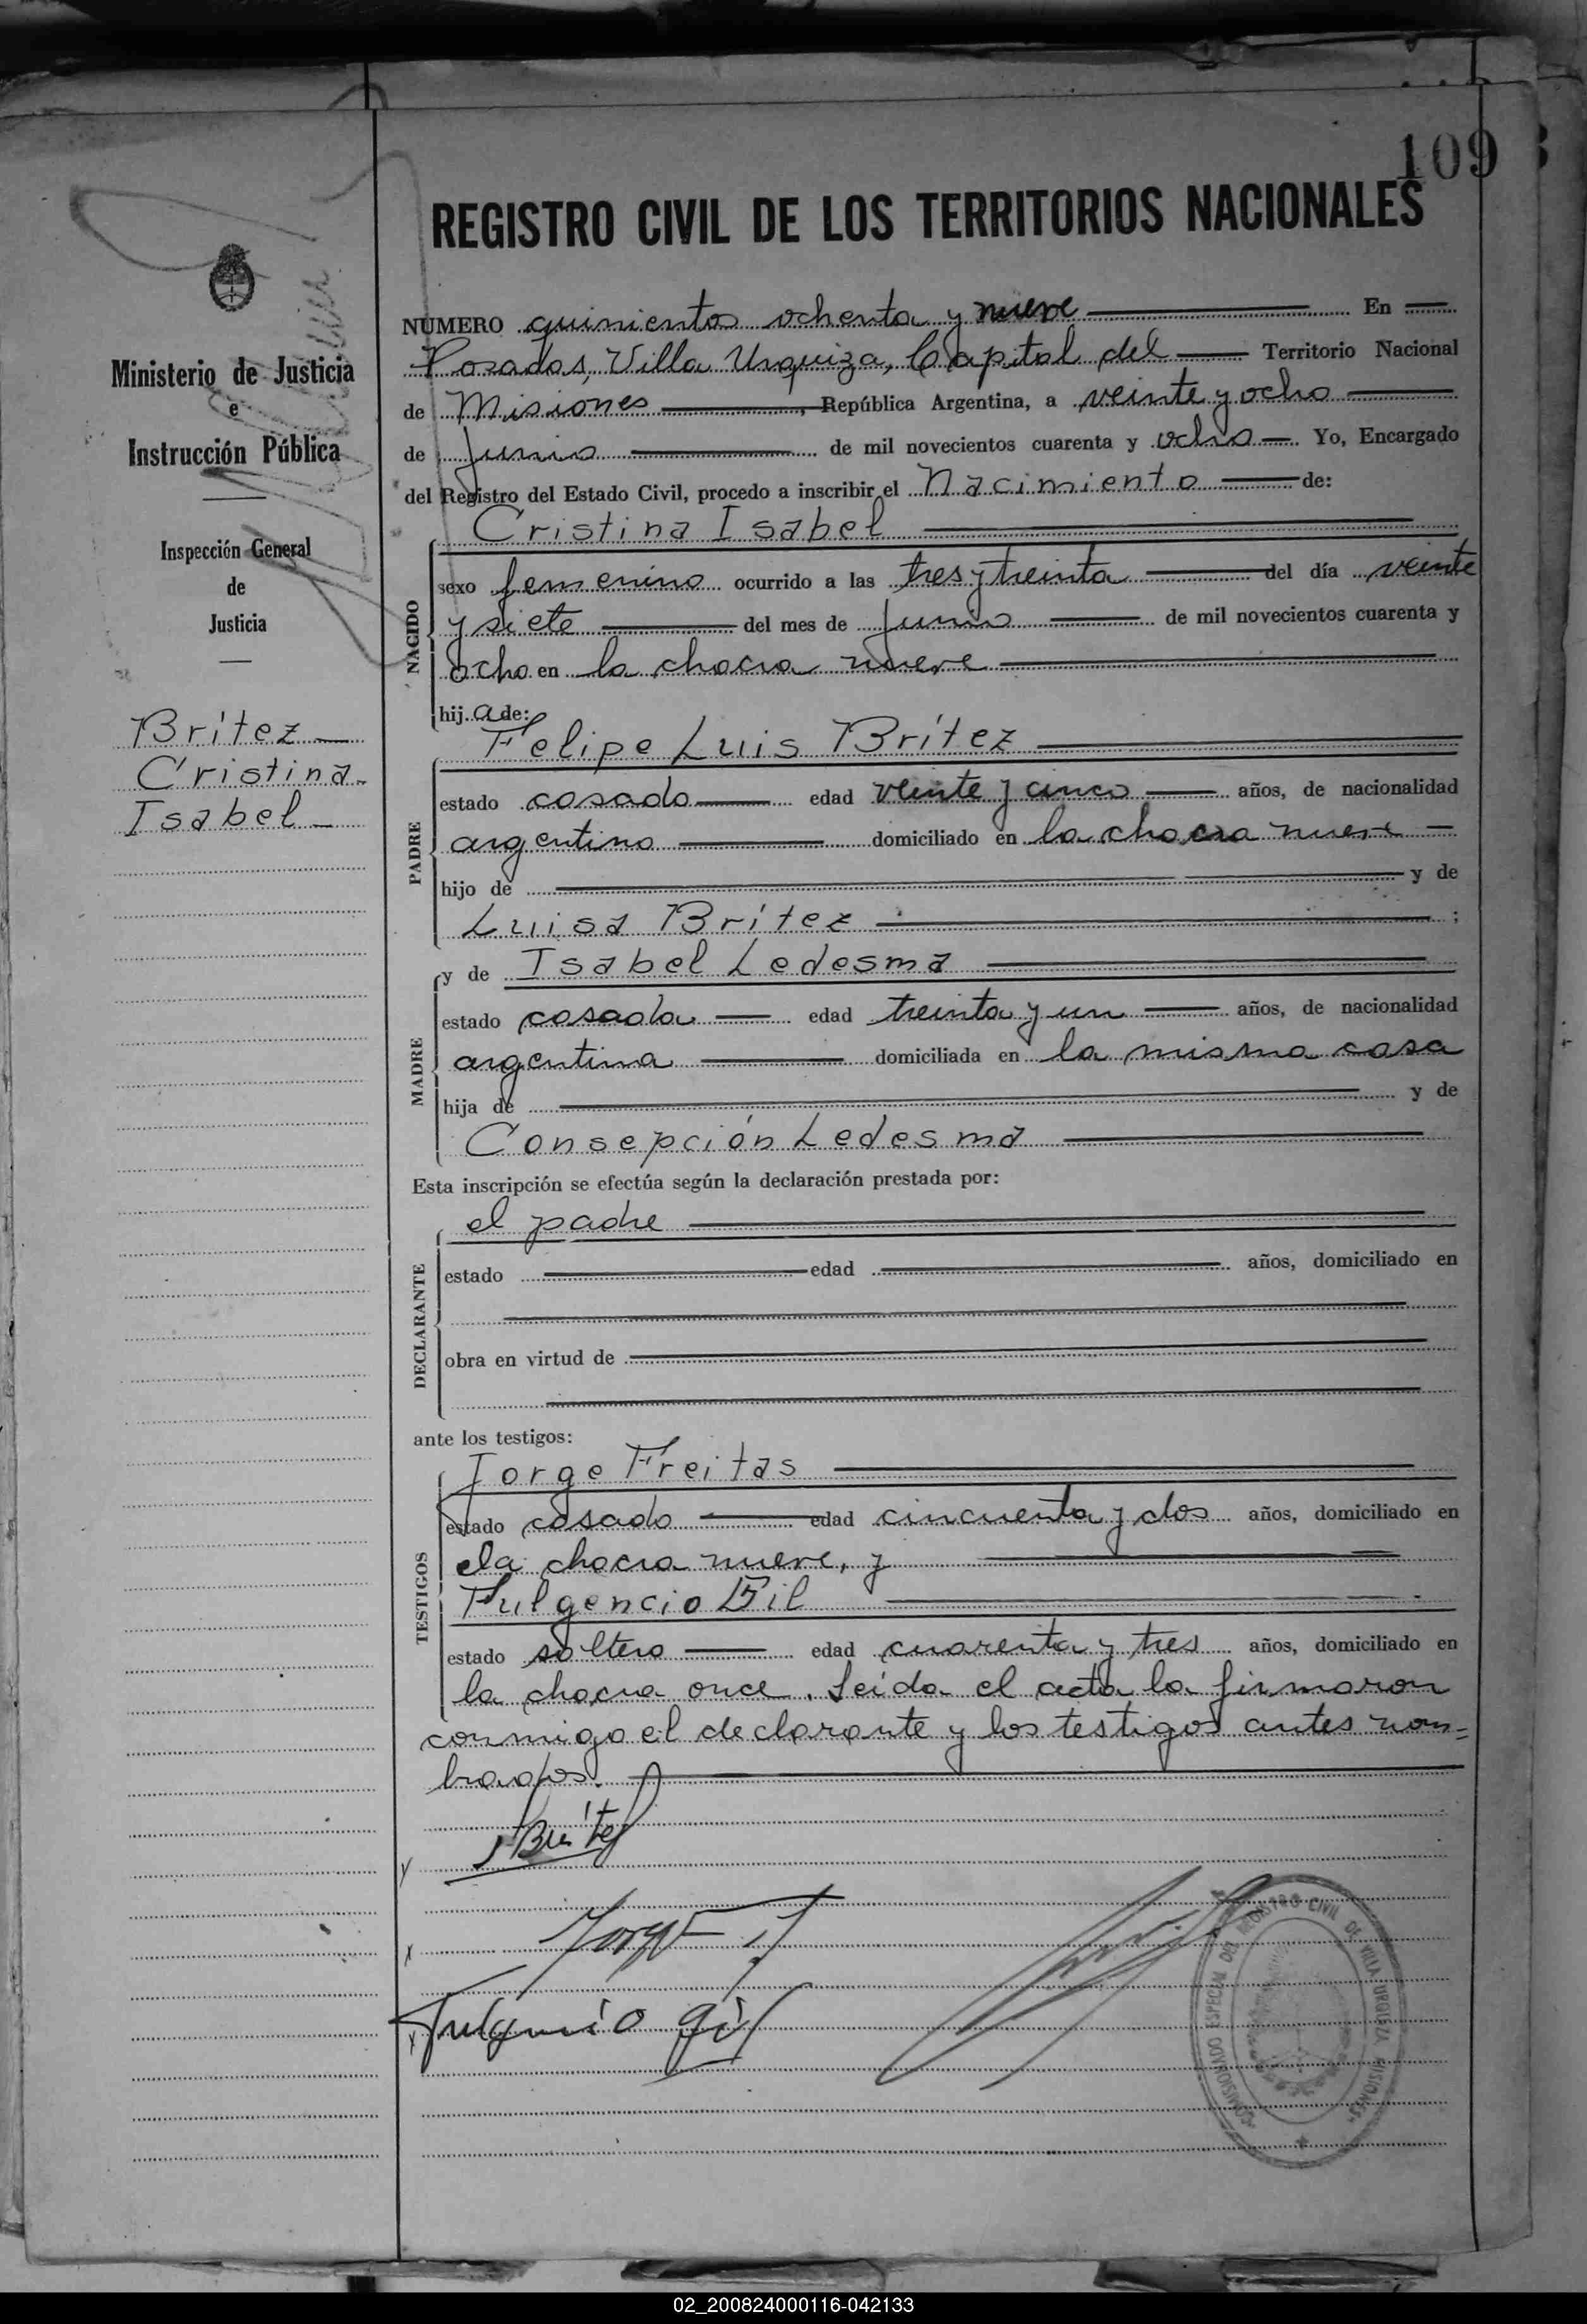 109
REGISTRO CIVIL DE LOS TERRITORIOS NACIONALES
NUMERO quinientos ochenta y nueve En
Posadas, Villa Urquiza, Capital del Territorio Nacional
de Misiones, República Argentina, a veinte y ocho
de Junio de mil novecientos cuarenta y ocho Yo, Encargado
del Registro del Estado Civil, procedo a inscribir el Nacimiento de:
Cristina Isabel
NACIDO
sexo femenino ocurrido a las tres y treinta del día veinte
y siete del mes de Junio de mil novecientos cuarenta y
ocho en la chacra nueve
hij.a de:
Felipe Luis Brítez
PADRE
estado casado edad veinte y cinco años, de nacionalidad
argentino domiciliado en la chacra nueve
hijo de y de
Luisa Brítez ;
y de Isabel Ledesma
MADRE
estado casada edad treinta y un años, de nacionalidad
argentina domiciliada en la misma casa
hija de y de
Consepción Ledesma
Esta inscripción se efectúa según la declaración prestada por:
el padre
DECLARANTE
estado edad años, domiciliado en
obra en virtud de
ante los testigos:
Jorge Freitas
TESTIGOS
estado casado edad cincuenta y dos años, domiciliado en
la chacra nueve, y
Fulgencio Gil
estado soltero edad cuarenta y tres años, domiciliado en
la chacra once. Leída el acta la firmaron
conmigo el declarante y los testigos antes nom=
brados.
Brítez
Jorge
Fulgencio gil
COMISIONADO ESPECIAL DEL REGISTRO CIVIL DE VILLA URQUIZA MISIONES
Ministerio de Justicia
e
Instrucción Pública
Inspección General
de
Justicia
Brítez
Cristina
Isabel
02_200824000116-042133